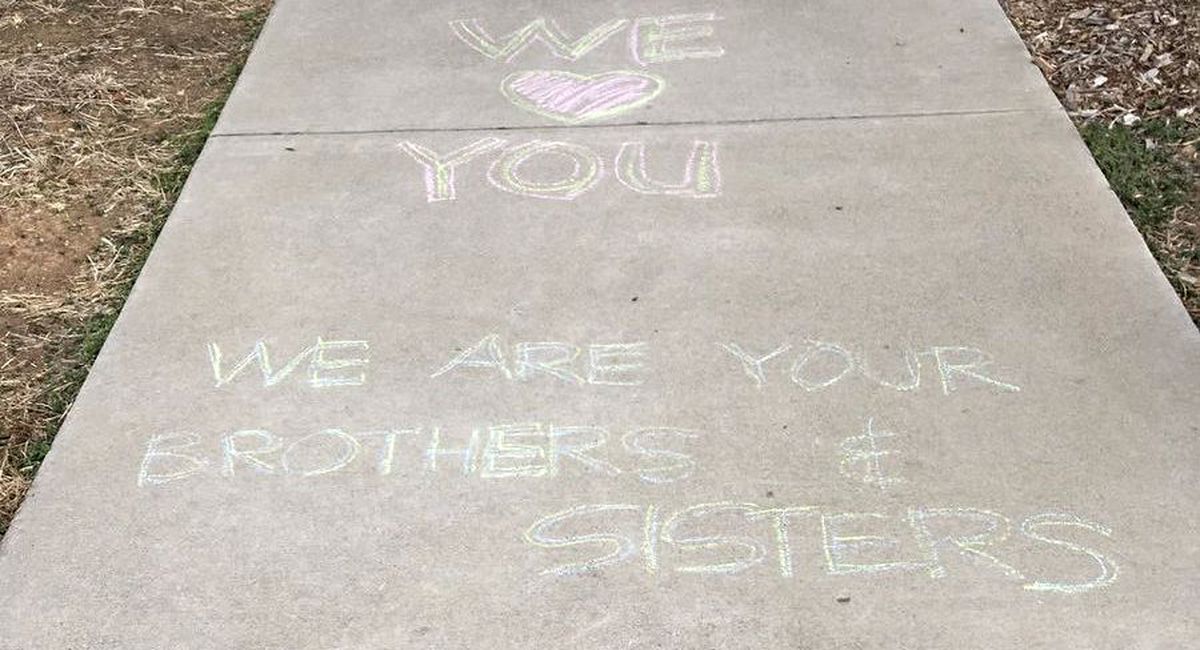 WE
♥
YOU
WE ARE YOUR
BROTHERS &
SISTERS